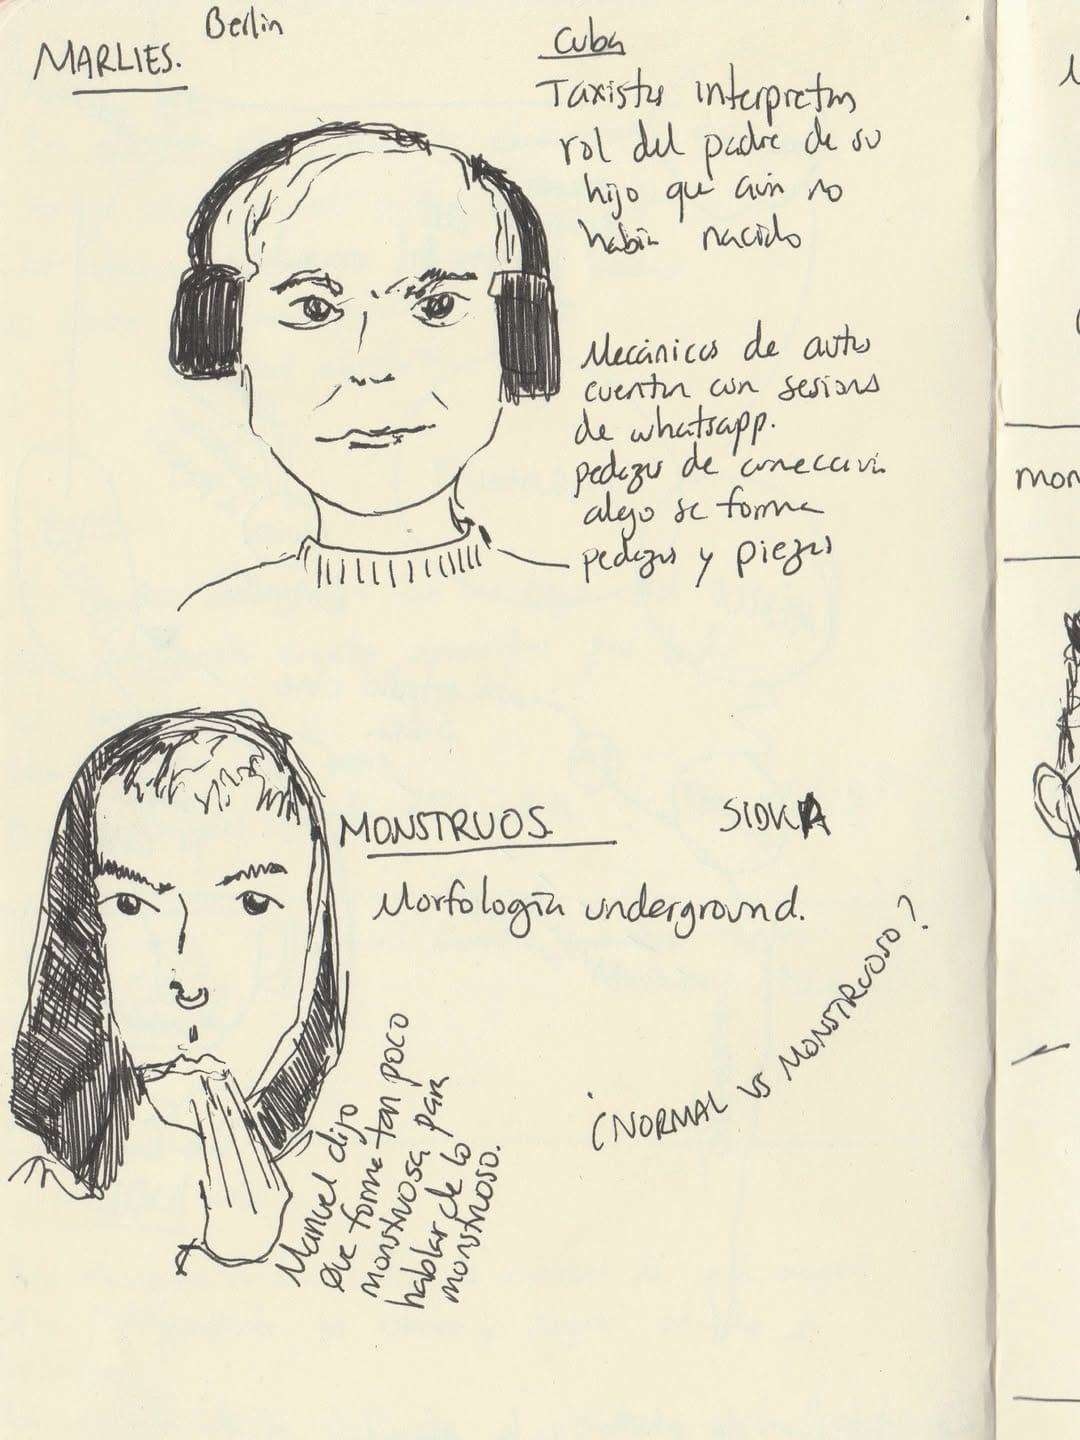 MARLIES.
Berlin
Cuba
Taxistas interpretan
rol del padre de su
hijo que aún no
había nacido
Mecánicos de autos
cuentan con sesiones
de whatsapp.
pedazos de
algo se forma
pedazos y piezas
MONSTRUOS.
Morfología underground.
¿NORMAL VS MONSTRUOSO?
Manuel dijo
Que forma tan poco
monstruosa para
hablar de lo
monstruoso.
mon